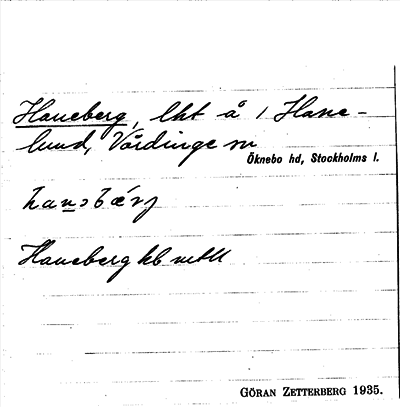 Haneberg, lht å 1 Hane-
lund, Vårdinge sn
Öknebo hd, Stockholms l.
Haneberg hb
GÖRAN ZETTERBERG 1935.